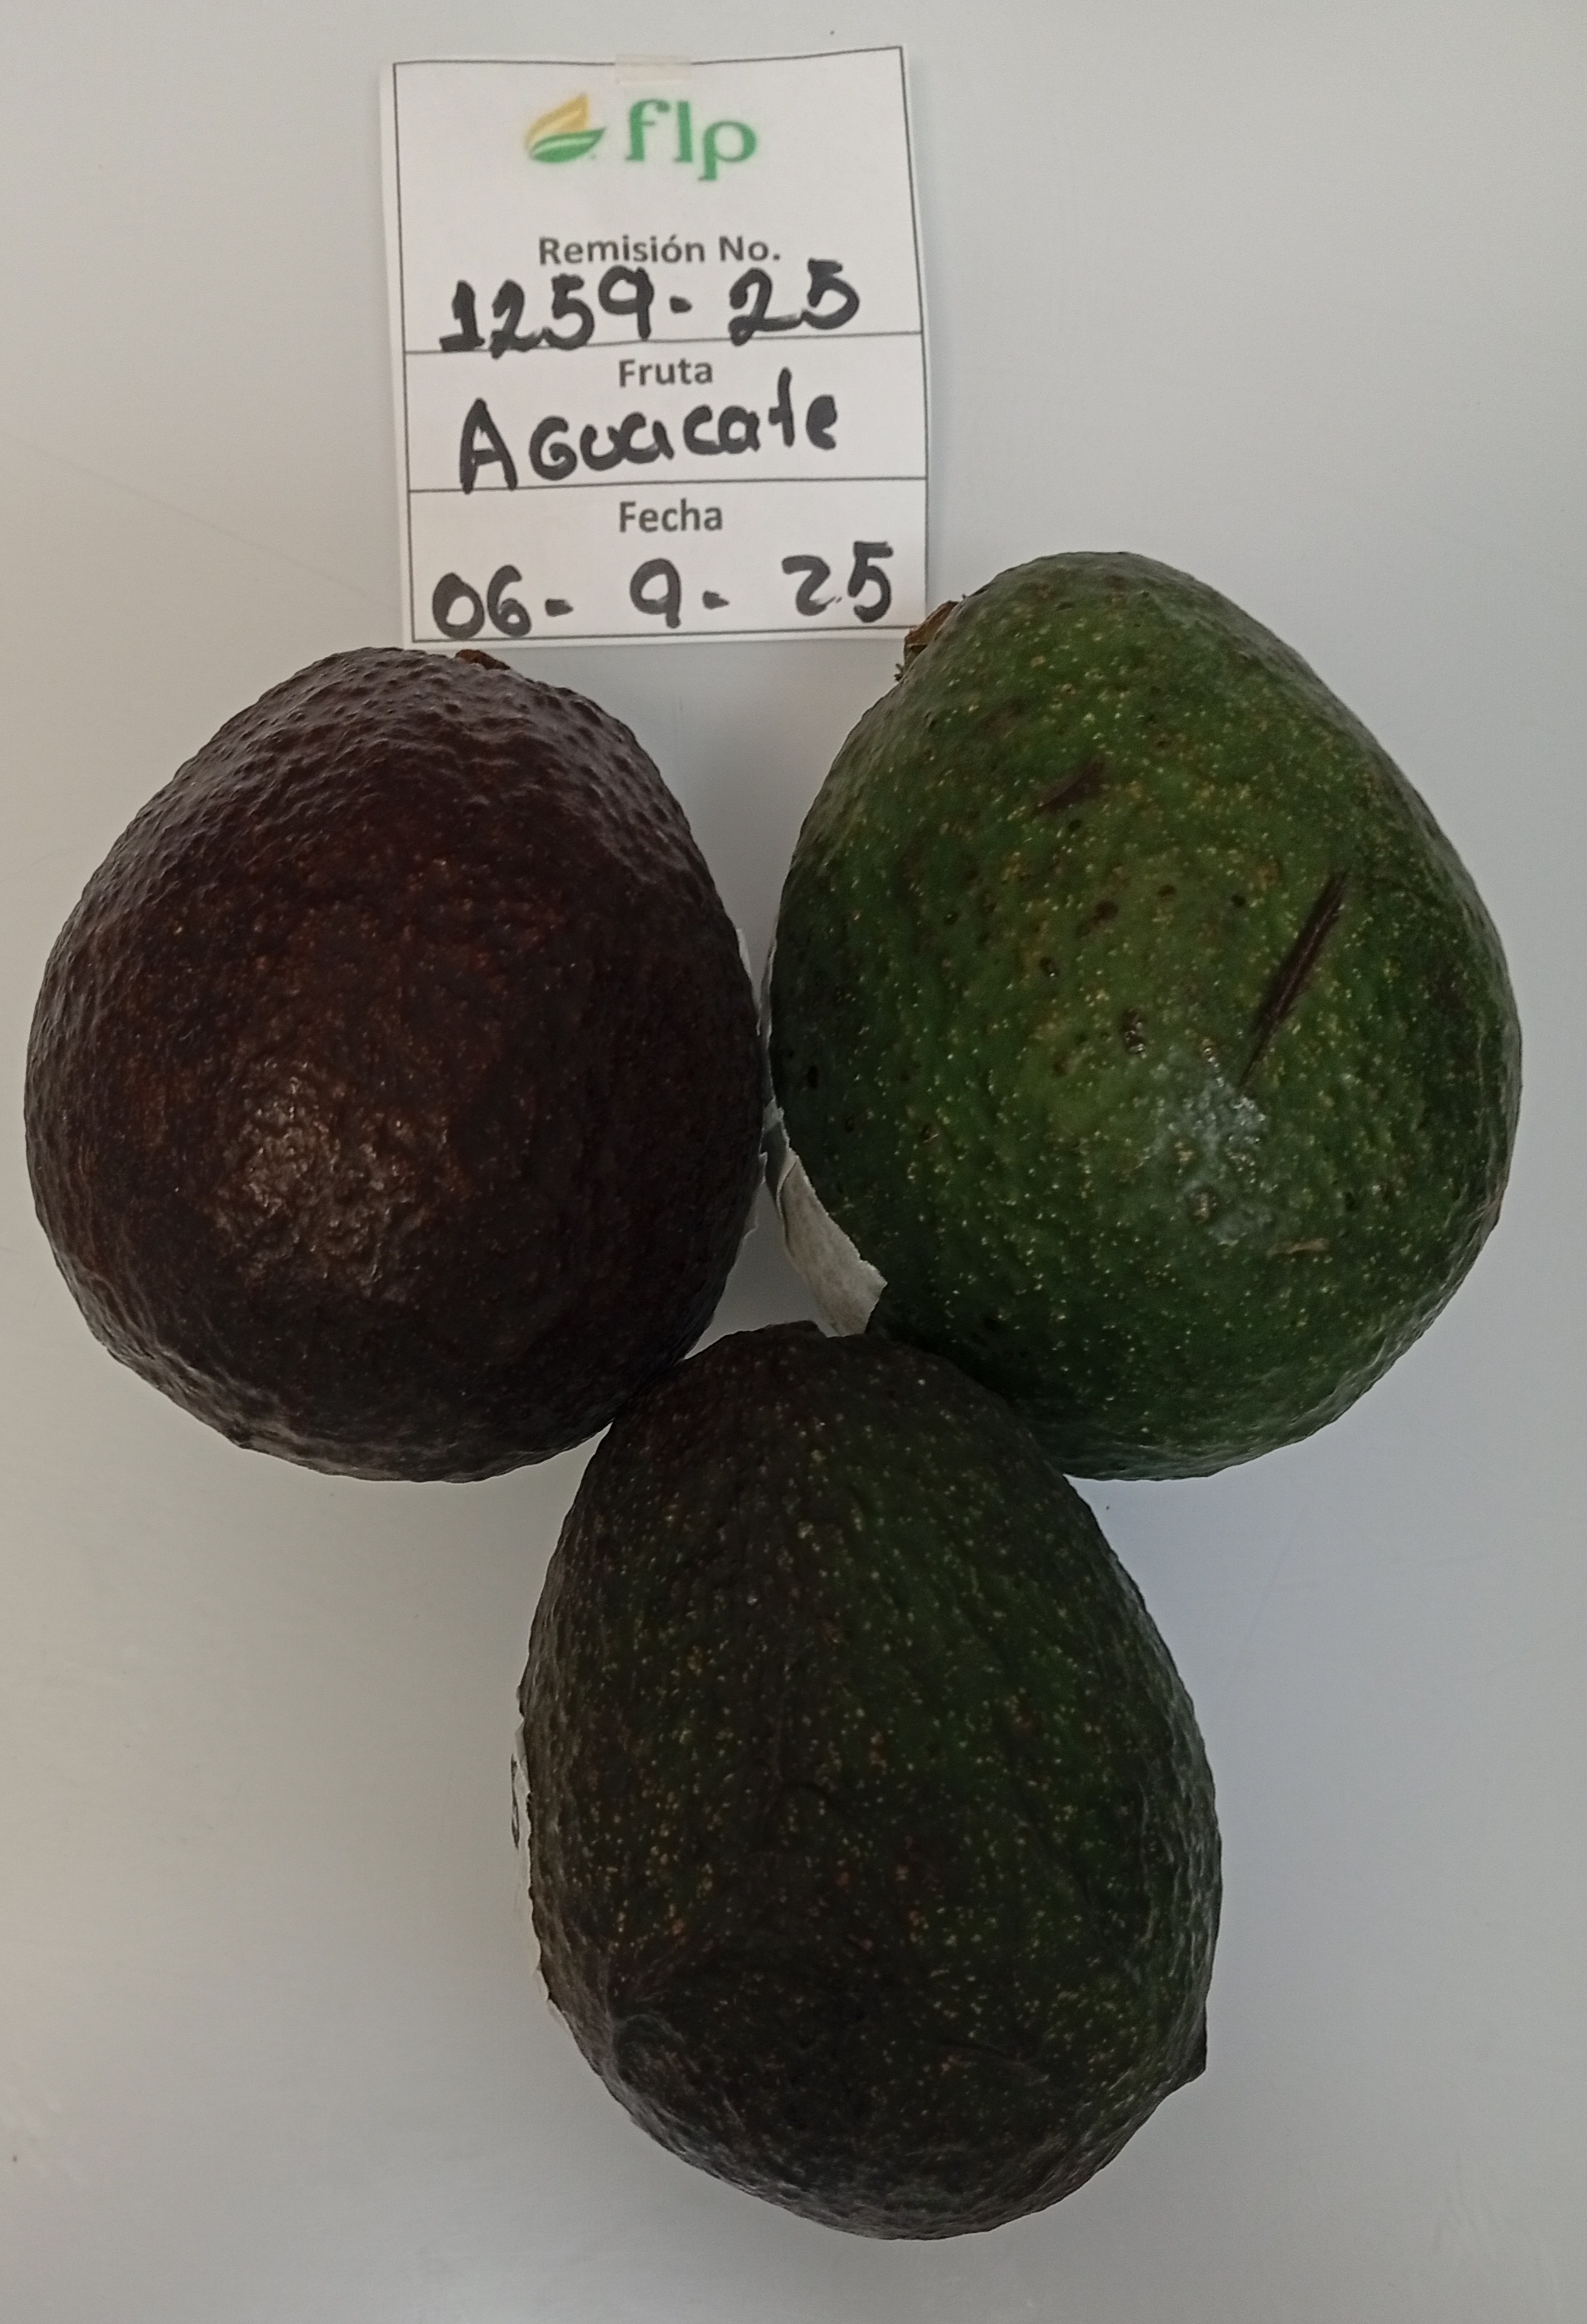 flp
Remisión No.
1259-25
Fruta
Aguacate
Fecha
06-9-25